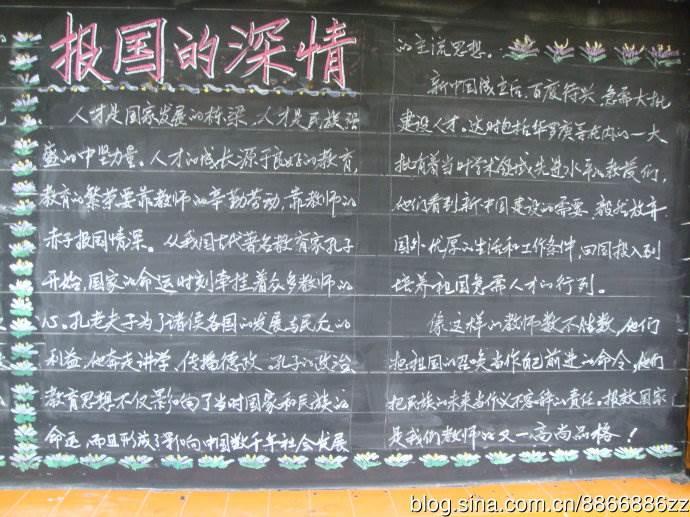 报国的深情
人才是国家发展的栋梁,人才是民族强
盛的中坚力量。人才的成长源于良好的教育,
教育的繁荣要靠教师的辛勤劳动,靠教师的
赤子报国情深。从我国古代著名教育家孔子
开始,国家的命运时刻牵挂着众多教师的
心。孔老夫子为了诸侯各国的发展与民众的
利益,他奔走讲学,传播德政。孔子的政治、
教育思想不仅影响了当时国家和民族的
命运,而且形成了影响中国数千年社会发展
的主流思想。
新中国成立后,百废待兴,急需大批
建设人才。这时包括华罗庚等在内的一大
批有着当时学术领域先进水平的教授们,
他们看到新中国建设的需要,毅然放弃
国外优厚的生活和工作条件,回国投入到
培养祖国急需人才的行列。
像这样的教师数不胜数,他们
把祖国的召唤当作自己前进的命令,他们
把民族的未来当作义不容辞的责任。报效国家
是我们教师的又一高尚品格!
blog.sina.com.cn/8866886zz